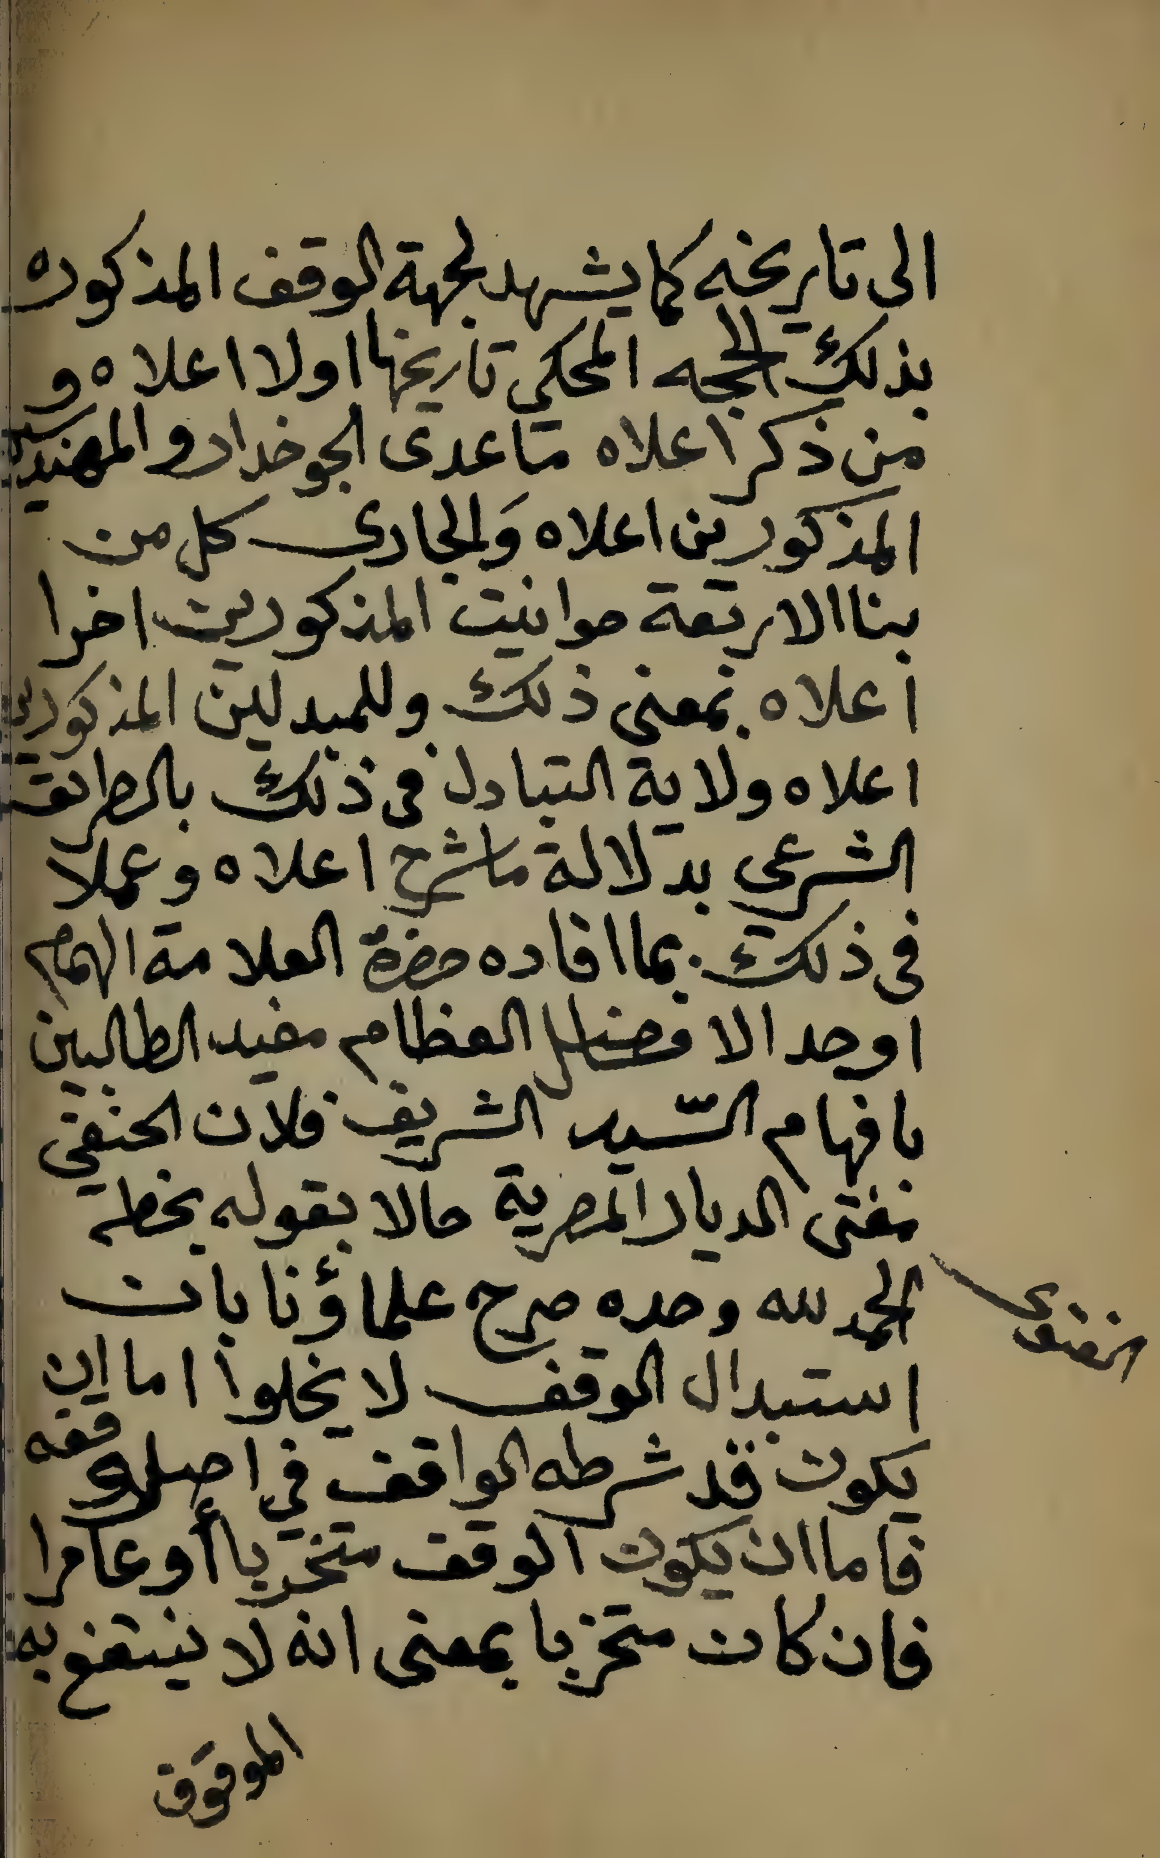 الى تاريخه كما يشهد لجهة الوقف المذكوره
بذلك الحجه المحكى تاريخها اولا اعلاه و
من ذكر اعلاه ماعدى الجوخدار والمهندسين
المذكورين اعلاه والجارى كل من
بنا الاربعة حوانيت المذكورين اخرا
اعلاه بمعنى ذلك وللمبدلين المذكورين
اعلاه ولاية التبادل فى ذلك بالطريق
الشرعي بدلالة ماشرح اعلاه وعملا
فى ذلك بما افاده حضرة العلامة الهمام
اوحد الافضل العظام مفيد الطالبين
بافهام السّيد الشريف فلان الحنفي
مفتى الديار المصرية حالا بقوله بخطه
الحمد لله وحده صرح علماؤنا بان
الفتوى
استبدال الوقف لا يخلوا اما ان
يكون قد شرطه الواقف في اصل وقفه
فاما ان يكون الوقف متخربا أو عامرا
فان كان متخربا بمعنى انه لا ينتفع به
الموقوف